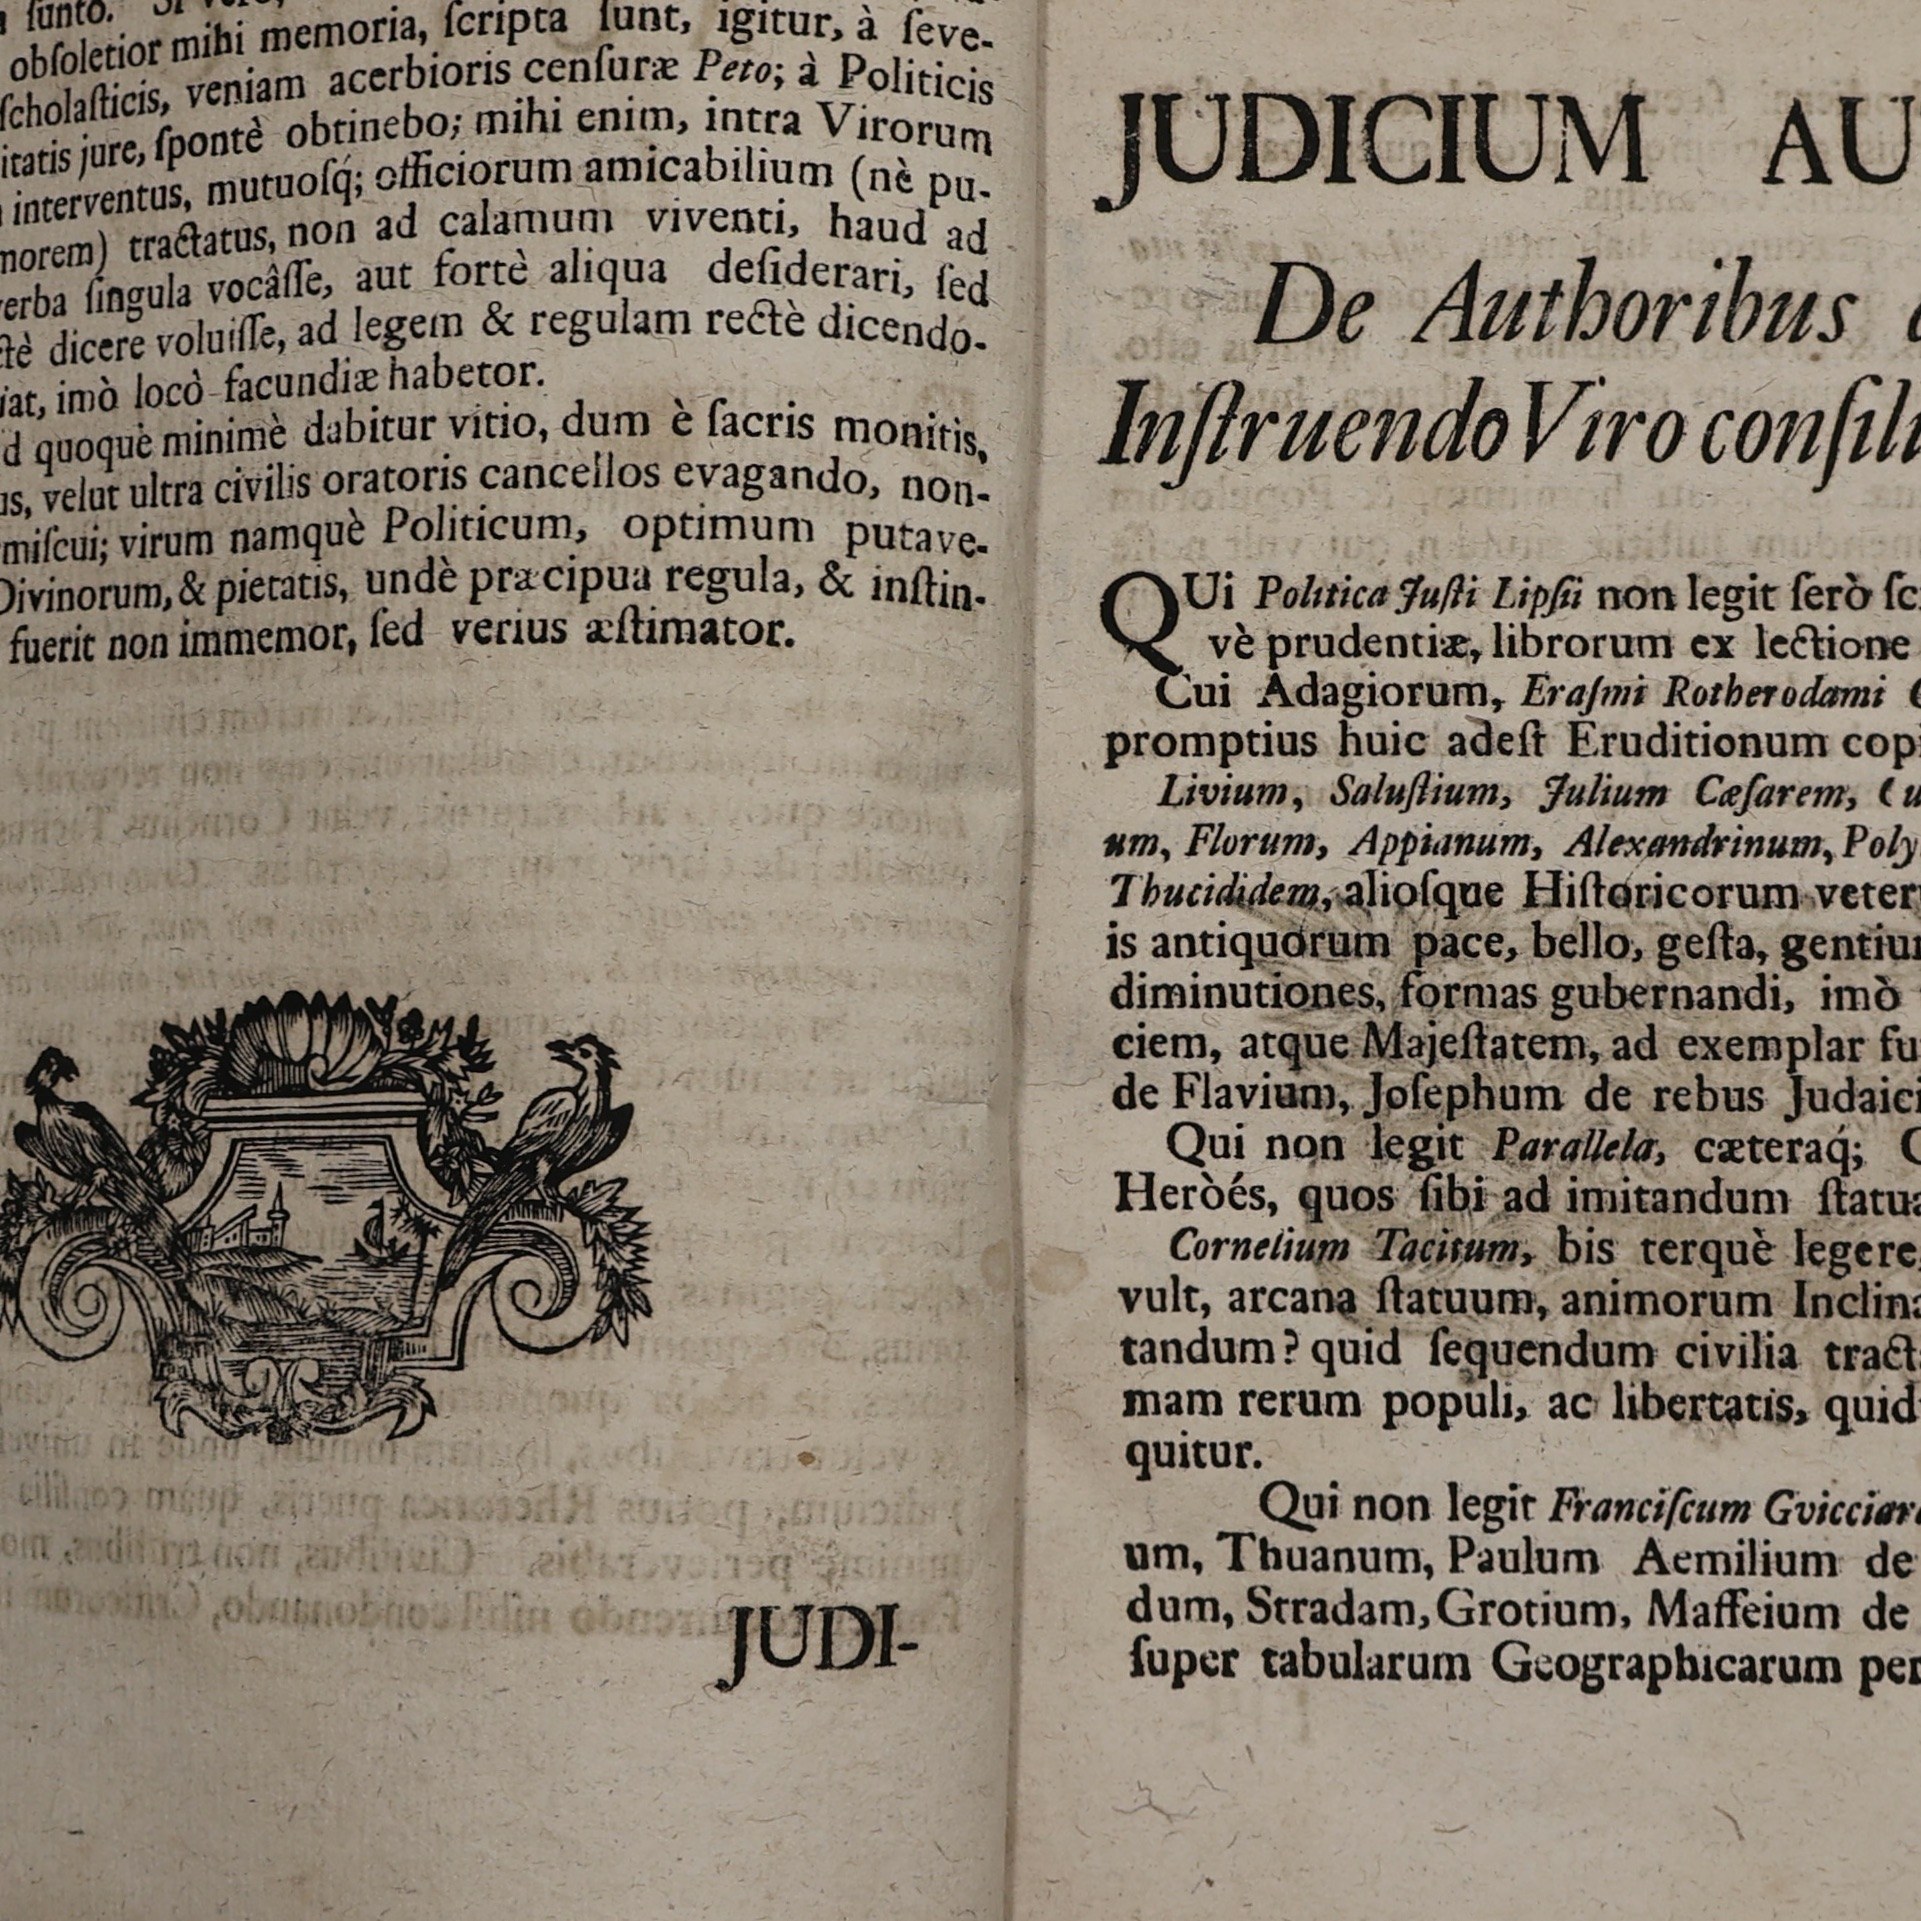 ſunto. Si vero,
obſoletior mihi memoria, ſcripta ſunt, igitur, à ſeve-
ſcholaſticis, veniam acerbioris cenſuræ Peto; à Politicis
itatis jure, ſpontè obtinebo; mihi enim, intra Virorum
interventus, mutuoſq́; officiorum amicabilium (nè pu-
morem) tractatus, non ad calamum viventi, haud ad
verba ſingula vocâſſe, aut fortè aliqua deſiderari, ſed
ctè dicere voluiſſe, ad legem & regulam rectè dicendo-
iat, imò locò facundiæ habetor.
d quoquè minimè dabitur vitio, dum è ſacris monitis,
us, velut ultra civilis oratoris cancellos evagando, non-
miſcui; virum namquè Politicum, optimum putave-
Divinorum, & pietatis, undè præcipua regula, & inſtin-
fuerit non immemor, ſed verius æſtimator.
JUDI-
JUDICIUM AU
De Authoribus
Inſtruendo Viro conſili
QUi Politica Juſti Lipſii non legit ſerò ſc
vè prudentiæ, librorum ex lectione
Cui Adagiorum, Eraſmi Rotherodami
promptius huic adeſt Eruditionum cop
Livium, Saluſtium, Julium Cæſarem, Cu
um, Florum, Appianum, Alexandrinum, Poly
Thucididem, alioſque Hiſtoricorum veter
is antiquorum pace, bello, geſta, gentiu
diminutiones, formas gubernandi, imò
ciem, atque Majeſtatem, ad exemplar fu
de Flavium, Joſephum de rebus Judaici
Qui non legit Parallela, cæteraq́;
Heròés, quos ſibi ad imitandum ſtatua
Cornelium Tacitum, bis terquè legere,
vult, arcana ſtatuum, animorum Inclina
tandum? quid ſequendum civilia tract
mam rerum populi, ac libertatis, quid
quitur.
Qui non legit Franciſcum Gvicciar
um, Thuanum, Paulum Aemilium de
dum, Stradam, Grotium, Maffeium de
ſuper tabularum Geographicarum per